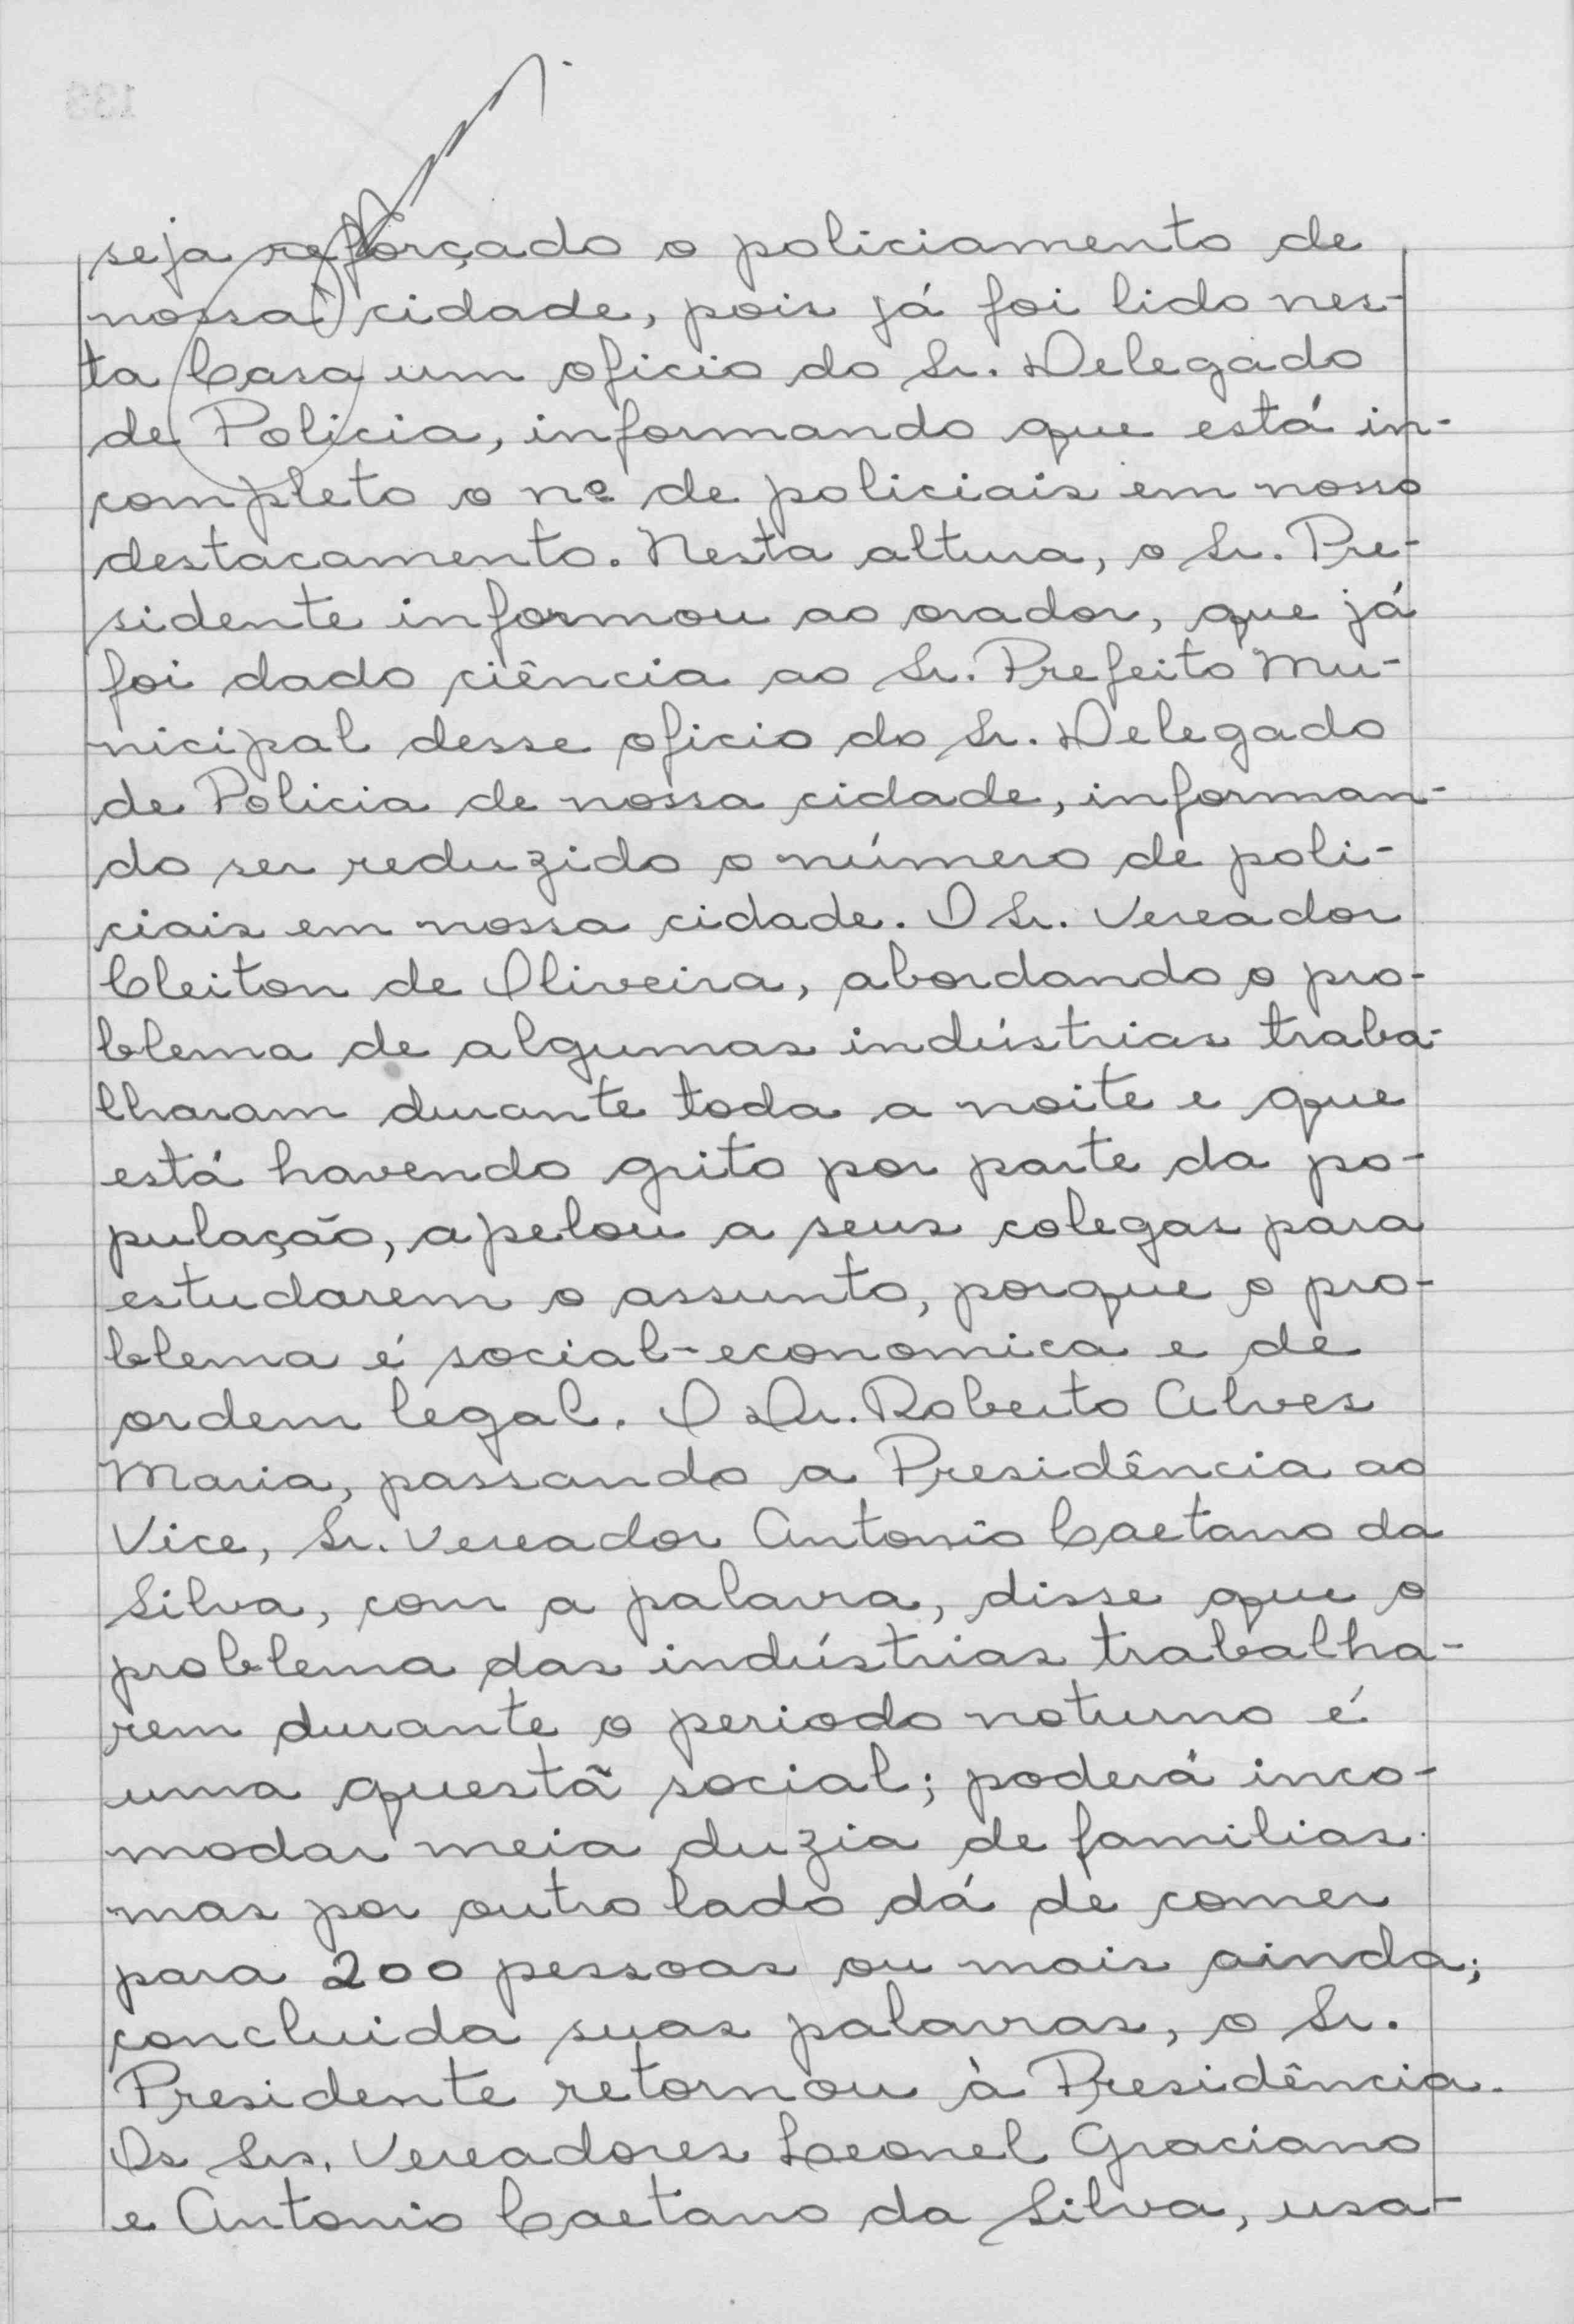 seja reforçado o policiamento de
nossa cidade, pois já foi lido nes-
ta Casa um oficio do Sr. Delegado
de Policia, informando que está in-
completo o nº de policiais em nosso
destacamento. Nesta altura, o Sr. Pre-
sidente informou ao orador, que já
foi dado ciência ao Sr. Prefeito Mu-
nicipal desse oficio do Sr. Delegado
de Policia de nossa cidade, informan-
do ser reduzido o número de poli-
ciais em nossa cidade. O Sr. Vereador
Cleiton de Oliveira, abordando o pro-
blema de algumas indústrias traba-
lharam durante toda a noite e que
está havendo grito por parte da po-
pulação, apelou a seus colegas para
estudarem o assunto, porque o pro-
blema é social-economica e de
ordem legal. O Dr. Roberto Alves
Maria, passando a Presidência ao
Vice, Sr. Vereador Antonio Caetano da
Silva, com a palavra, disse que o
problema das indústrias trabalha-
rem durante o periodo noturno é
uma questã social; poderá inco-
modar meia duzia de familias
mas por outro lado dá de comer
para 200 pessoas ou mais ainda;
concluida suas palavras, o Sr.
Presidente retornou à Presidência.
Os Srs. Vereadores Leonel Graciano
e Antonio Caetano da Silva, usa-